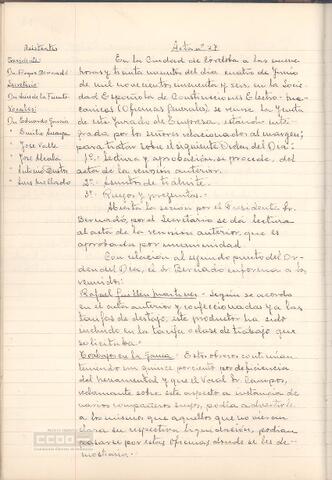 Asistentes
Presidente
Secretario
Vocales:
Dn. Eduardo García
" Emilio
" José Valle
" José Alcalá
" Luis
Acta nº 27
En la Ciudad de Córdoba a las nueve
horas y treinta minutos del día cuatro de Junio
de mil novecientos cincuenta y seis, en la Socie-
dad Española de Construcciones Electro-Me-
cánicas (Oficinas Generales), se reúne la Junta
de este Jurado de Empresa, estando inte-
grada por los señores relacionados al margen;
para tratar sobre el siguiente Orden del Día:
1º.- Lectura y aprobación, si procede, del
acta de la reunión anterior.
2º.- Asuntos de trámite.
3º.- Ruegos y preguntas.
Abierta la sesión por el Presidente Sr.
Bernadó, por el Secretario se da lectura
al acta de la reunión anterior, que es
aprobada por unanimidad.
Con relación al segundo punto del Or-
den del Día, el Sr. Bernadó informa a los
reunidos:
Rafael Guillén Martínez - Según se acordó
en el acta anterior y confeccionadas ya las
tarifas de destajo, este productor ha sido
incluido en la tarifa o clase de trabajo que
solicitaba.
Trabajos en la Goma - Estos obreros continúan
teniendo un quince por ciento por deficiencia
del herramental y que el Vocal Sr. Campos,
reclamante sobre este aspecto a instancia de
varios compañeros suyos, podía advertirle
a los mismos que aquellos que no vieran
clara su respectiva liquidación, podían
pasarse por estas oficinas donde se les de-
mostraría.
CCOO